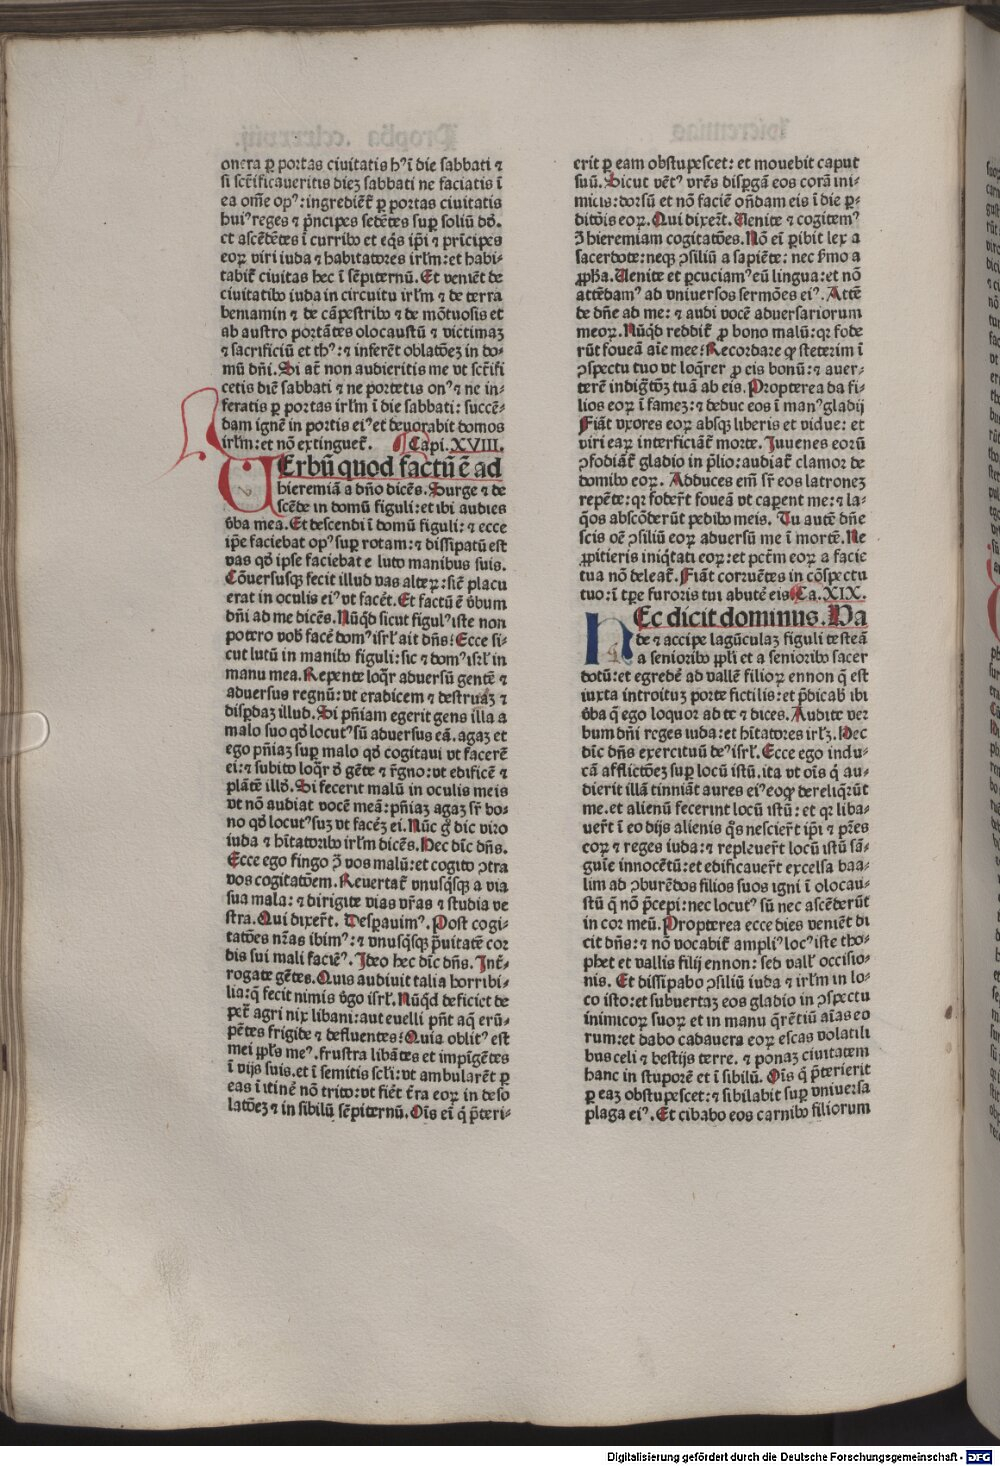 onera ꝑ portas ciuitatis hꝰ ī die sabbati ⁊
si sct̄ificaueritis diez sabbati ne faciatis ī
ea om̄e opꝰ: ingrediēt̄ ꝑ portas ciuitatis
huiꝰ reges ⁊ p̄ncipes sedētes suꝑ soliū dd̄.
et ascēdētes ī curribꝰ et eq̄s ip̄i ⁊ prīcipes
eoꝝ viri iuda ⁊ habitatores irl̄m: et habi⸗
tabit̄ ciuitas hec ī sēpiternū. Et veniēt de
ciuitatibꝰ iuda in circuitu irl̄m ⁊ de terra
beniamin ⁊ de cāpestribꝰ ⁊ de mōtuosis et
ab austro portātes olocaustū ⁊ victimaz
⁊ sacrificiū et thꝰ: ⁊ inferēt oblatōez in do⸗
mū dn̄i. Si at̄ non audieritis me vt scr̄ifi
cetis diē sabbati ⁊ ne portetis onꝰ ⁊ ne in⸗
feratis ꝑ portas irl̄m ī die sabbati: succē⸗
dam ignē in portis eiꝰ et deuorabit domos
irl̄m: et nō extinguet̄. Capi. XVIII.
VErbū quod factū ē ad
hieremiā a dn̄o dicēs. Surge ⁊ de
scēde in domū figuli: et ibi audies
v̄ba mea. Et descendi ī domū figuli: ⁊ ecce
ip̄e faciebat opꝰ suꝑ rotam: ⁊ dissipatū est
vas qd̄ ipse faciebat e luto manibus suis.
Cōuersusqꝫ fecit illud vas alteꝝ: sic̄ placu
erat in oculis eiꝰ vt facēt. Et factū ē v̄bum
dn̄i ad me dicēs. Nūqd̄ sicut figulꝰ iste non
potero vob̄ facē domꝰ isrl̄ ait dn̄s? Ecce si⸗
cut lutū in manibꝰ figuli: sic ⁊ domꝰ isrl̄ in
manu mea. Repente loqr̄ aduersū gentē ⁊
aduersus regnū: vt eradicem ⁊ destruaz ⁊
disꝑdaz illud. Si pn̄iam egerit gens illa a
malo suo qd̄ locutꝰ sū aduersus eā. agaz et
ego pn̄iaz suꝑ malo qd̄ cogitaui vt facerē
ei: ⁊ subito loqr̄ d̄ gēte ⁊ r̄gno: vt edificē ⁊
plātē illd̄. Si fecerit malū in oculis meis
vt nō audiat vocē meā: pn̄iaz agaz sr̄ bo⸗
no qd̄ locutꝰ suz vt facēz ei. Nūc ḡ dic viro
iuda ⁊ hītatoribꝰ irl̄m dicēs. Hec dīc dn̄s.
Ecce ego fingo ↄ̄ vos malū: et cogito ↄtra
vos cogitatōem. Reuertat̄ vnusq̄sqꝫ a via
sua mala: ⁊ dirigite vias vr̄as ⁊ studia ve
stra. Qui dixer̄t. Desꝑauimꝰ. Post cogi⸗
tatōes nr̄as ibimꝰ: ⁊ vnusq̄sqꝫ p̄uitatē cor
dis sui mali faciēꝰ. Ideo hec dīc dn̄s. Int̄⸗
rogate gētes. Quis audiuit talia horribi⸗
lia: q̄ fecit nimis v̄go isrl̄. Nūqd̄ deficiet de
pet̄ agri nix libani: aut euelli pn̄t aq̄ erū⸗
pētes frigide ⁊ defluentes? Quia oblitꝰ est
mei ppl̄s meꝰ. frustra libātes et impīgētes
ī vijs suis. et ī semitis scl̄i: vt ambularēt ꝑ
eas ī itinē nō trito: vt fiēt t̄ra eoꝝ in deso
latōez ⁊ in sibilū sēpiternū. Oīs ei q̄ p̄teri⸗
erit ꝑ eam obstupescet: et mouebit caput
suū. Sicut vētꝰ vrēs disꝑgā eos corā ini⸗
micis: dorsū et nō faciē on̄dam eis ī die ꝑ⸗
ditōis eoꝝ. Qui dixer̄t. Uenite ⁊ cogitemꝰ
ↄ̄ hieremiam cogitatōes. Nō ei ꝑibit lex a
sacerdote: neqꝫ ↄsiliū a sapiēte: nec s̄mo a
ꝓph̄a. Uenite et ꝑcuciamꝰ eū lingua: et nō
attēdamꝰ ad vniuersos sermōes eiꝰ. Attē
de dn̄e ad me: ⁊ audi vocē aduersariorum
meoꝝ. Nūqd̄ reddit̄ ꝓ bono malū: qꝛ fode
rūt foueā aīe mee? Recordare qꝙ steterim ī
ↄspectu tuo vt loq̄rer ꝓ eis bonū: ⁊ auer⸗
terē indigtōz tuā ab eis. Propterea da fi⸗
lios eoꝝ ī famez: ⁊ deduc eos ī manꝰ gladij
Fiāt vxores eoꝝ absqꝫ liberis et vidue: et
viri eaꝝ interficiāt̄ morte. Iuuenes eorū
ↄfodiāt̄ gladio in p̄lio: audiat̄ clamor de
domibꝰ eoꝝ. Adduces em̄ sr̄ eos latronez
repēte: qꝛ foder̄t foueā vt caꝑent me: ⁊ la⸗
q̄os abscōderūt pedibꝰ meis. Tu autē dn̄e
scis oē ↄsiliū eoꝝ aduersū me ī mortē. Ne
ꝓpitieris iniq̄tati eoꝝ: et pct̄m eoꝝ a facie
tua nō deleat̄. Fiāt corruētes in cōspectu
tuo: ī tp̄e furoris tui abutē eis Ca. XIX.
HEc dicit dominus. Va
de ⁊ accipe lagūculaz figuli testeā
a senioribꝰ ppl̄i et a senioribꝰ sacer
dotū: et egredē ad vallē filioꝝ ennon q̄ est
iuxta introituz porte fictilis: et p̄dicab̄ ibi
v̄ba q̄ ego loquor ad te ⁊ dices. Audite ver
bum dn̄i reges iuda: et hītatores irl̄z. Hec
dīc dn̄s exercituū deꝰ isrl̄. Ecce ego indu⸗
cā afflictōez suꝑ locū istū. ita vt oīs q̄ au⸗
dierit illā tinniāt aures eiꝰ eoqꝙ dereliq̄rūt
me. et alienū fecerint locū istū: et qꝛ liba⸗
uer̄t ī eo dijs alienis q̄s nescier̄t ip̄i ⁊ pr̄es
eoꝝ ⁊ reges iuda: ⁊ repleuer̄t locū istū sā⸗
guīe innocētū: et edificauer̄t excelsa baa⸗
lim ad ↄburēdos filios suos igni ī olocau⸗
stū q̄ nō p̄cepi: nec locutꝰ sū nec ascēderūt
in cor meū. Propterea ecce dies veniēt di
cit dn̄s: ⁊ nō vocabit̄ ampliꝰ locꝰ iste tho⸗
phet et vallis filij ennon: sed vall̄ occisio⸗
nis. Et dissipabo ↄsiliū iuda ⁊ irl̄m in lo⸗
co isto: et subuertaz eos gladio in ↄspectu
inimicoꝝ suoꝝ et in manu q̄rētiū aīas eo
rum: et dabo cadauera eoꝝ escas volatili
bus celi ⁊ bestijs terre. ⁊ ponaz ciuitatem
hanc in stuporē et ī sibilū. Oīs q̄ p̄terierit
ꝑ eaz obstupescet: ⁊ sibilabit suꝑ vniuersa
plaga eiꝰ. Et cibabo eos carnibꝰ filiorum
Digitalisierung gefördert durch die Deutsche Forschungsgemeinschaft - DFG